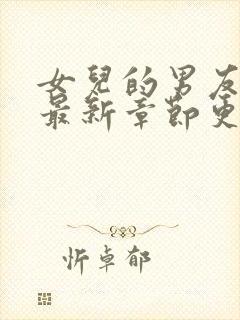 女兒的男友
最新章節更
忻卓郁